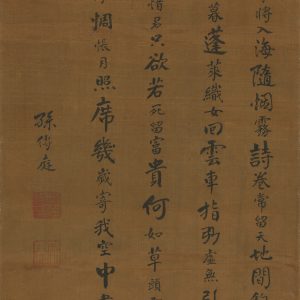 將入海隨烟霧詩卷常留天地間釣
暮蓬萊織女回雲車指點虛無引
惜君只欲苦死留富貴何如草頭
惆悵月照席幾歲寄我空中書
孫傳庭